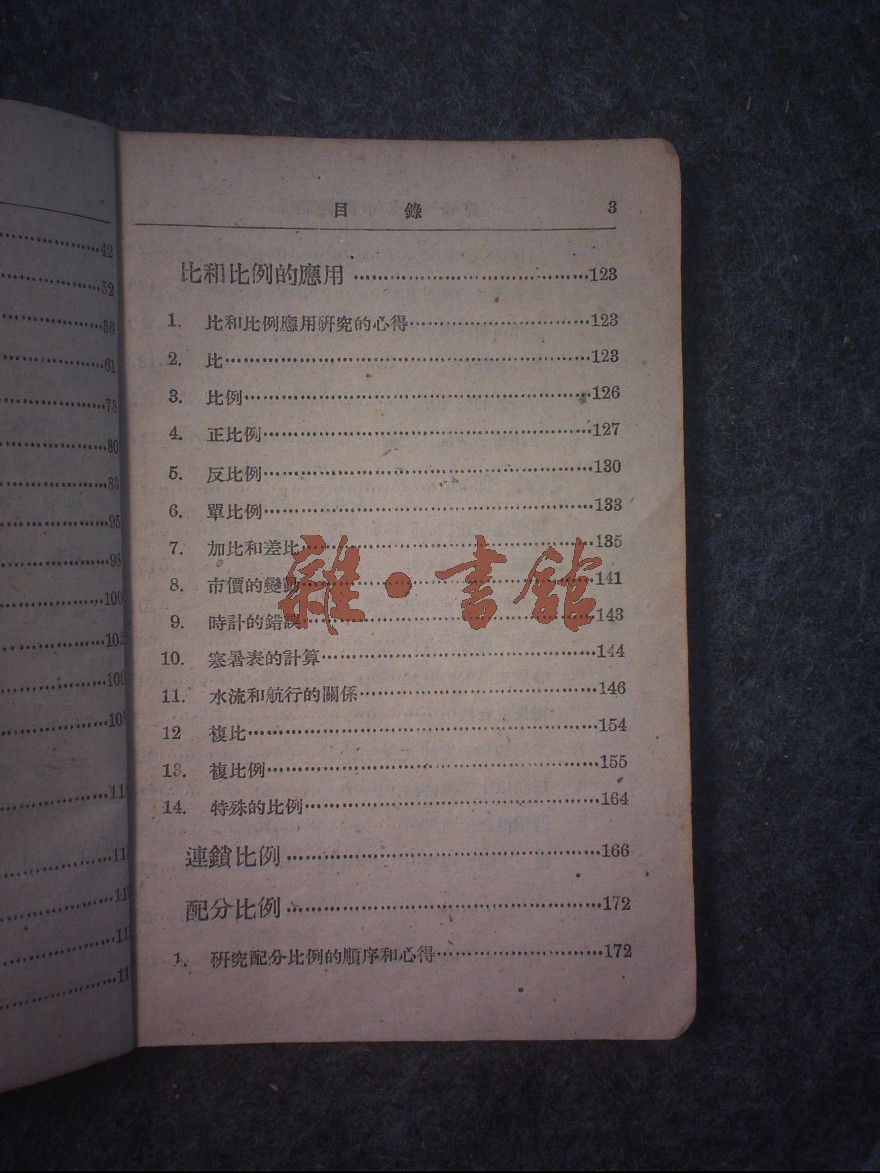 42
52
56
61
78
80
83
95
98
100
目 錄 3
比和比例的應用……………………123
1. 比和比例應用研究的心得……………………123
2. 比……………………123
3. 比例……………………126
4. 正比例……………………127
5. 反比例……………………130
6. 單比例……………………133
7. 加比和差比……………………135
8. 市價的變動……………………141
9. 時計的錯誤……………………143
10. 寒暑表的計算……………………144
11. 水流和航行的關係……………………146
12 複比……………………154
13. 複比例……………………155
14. 特殊的比例……………………164
連鎖比例……………………166
配分比例……………………172
1. 研究配分比例的順序和心得……………………172
雜·書館